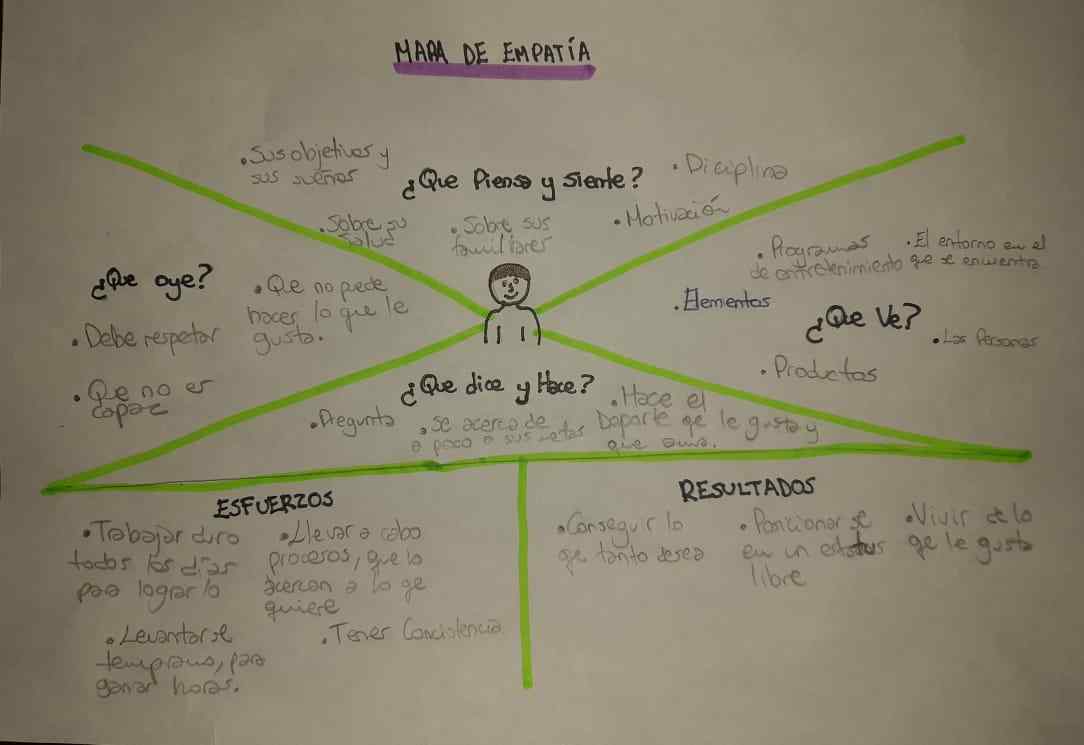 MAPA DE EMPATÍA
• Sus objetivos y
sus sueños
¿Que Piensa y Siente?
• Diciplina
• Sobre su
Salud
• Sobre sus
familiares
• Motivación
¿Que oye?
• Que no puede
hacer lo que le
gusta.
• Debe respetar
• Que no es
capaz
• Programas
de entretenimiento
• El entorno en el
que se encuentra
• Elementos
¿Que Ve?
• Las Personas
• Productos
¿Que dice y Hace?
• Pregunta
• se acerca de
a poco a sus metas
• Hace el
Doparte qe le gusta y
que ama.
ESFUERZOS
• Trabajar duro
todos los días
para lograrlo
• Llevar a cabo
procesos, que lo
acercan a lo qe
quiere
• Levantarse
temprano, para
ganar horas.
• Tener Concistencia
RESULTADOS
• Conseguir lo
qe tanto desea
• Poncionarse
en un estatus
libre
• Vivir de lo
qe le gusta